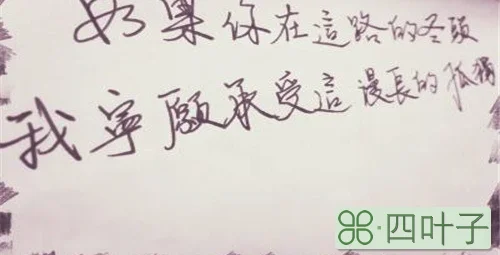 如果你在這路的尽頭
我寧願承受這漫長的孤獨
四叶子